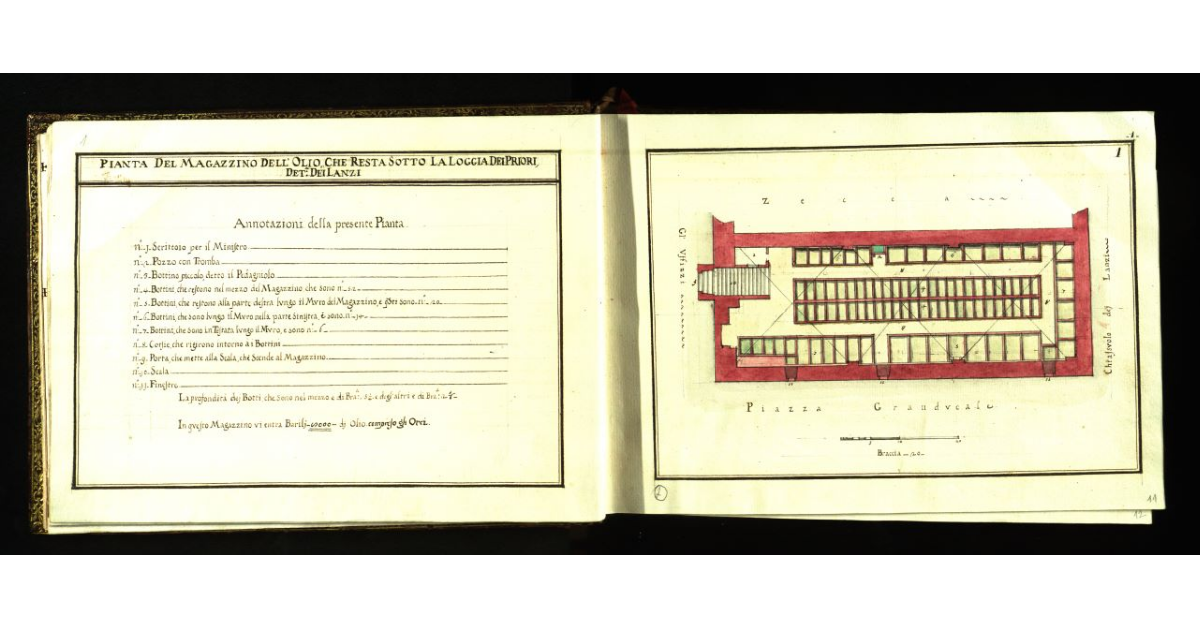 1
PIANTA DEL MAGAZZINO DELL'OLIO, CHE RESTA SOTTO LA LOGGIA DEI PRIORI,
DETᵃ. DEI LANZI
Annotazioni della presente Pianta.
nº.1. Scrittoio per il Ministro
nº.2. Pozzo con Tromba
nº.3. Bottino piccolo, detto il Pidagniolo
nº.4. Bottini, che restono nel mezzo del Magazzino che sono nº.52.
nº.5. Bottini, che restono alla parte destra lungo il Muro del Magazzino, e sono nº.20.
nº.6. Bottini, che sono lungo il Muro nella parte Sinistra, e sono nº
nº.7. Bottini, che sono in Testata lungo il Muro, e sono nº.6.
nº.8. Corsie, che rigirono intorno ai Bottini
nº.9. Porta, che mette alla Scala, che Scende al Magazzino
nº.10. Scala
nº.11. Finestre
La profondità dei Botti che sono nel mezzo e di Braᶜ. degl'altri e di Braᶜ.
In questo Magazzino vi entra Barili di Olio compreso gli Orci.
.1.
1
Zecca
Gl' Uffizzi
Chiassolo dei Lanzi
Piazza Granducale
Braccia 20
1
11
12